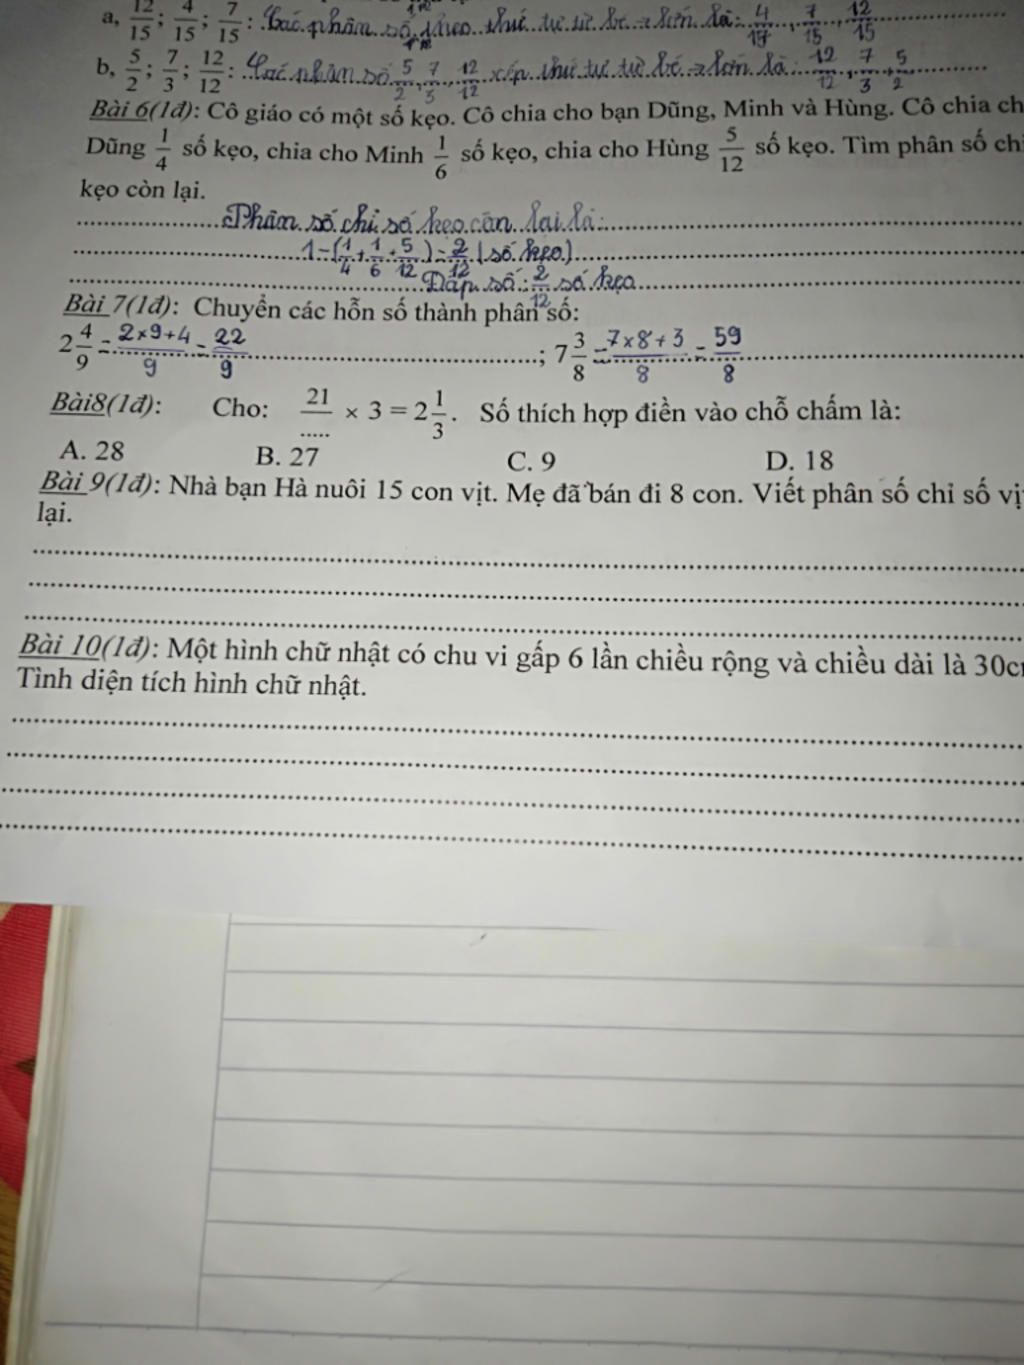 a, 12/15; 4/15; 7/15: Các phân số theo thứ tự từ bé → lớn là: 4/15, 7/15, 12/15
b, 5/2; 7/3; 12/12: Các phân số 5/2, 7/3, 12/12 xếp thứ tự từ bé → lớn là: 12/12, 7/3, 5/2
Bài 6(1đ): Cô giáo có một số kẹo. Cô chia cho bạn Dũng, Minh và Hùng. Cô chia ch
Dũng 1/4 số kẹo, chia cho Minh 1/6 số kẹo, chia cho Hùng 5/12 số kẹo. Tìm phân số ch
kẹo còn lại.
Phân số chỉ số kẹo còn lại là:
1-(1/4+1/6+5/12)=2/12 (số kẹo)
Đáp số: 2/12 số kẹo
Bài 7(1đ): Chuyển các hỗn số thành phân số:
2 4/9 = 2×9+4/9 = 22/9 ; 7 3/8 = 7×8+3/8 = 59/8
Bài8(1đ): Cho: 21/..... × 3 = 2 1/3. Số thích hợp điền vào chỗ chấm là:
A. 28 B. 27 C. 9 D. 18
Bài 9(1đ): Nhà bạn Hà nuôi 15 con vịt. Mẹ đã bán đi 8 con. Viết phân số chỉ số vị
lại.
Bài 10(1đ): Một hình chữ nhật có chu vi gấp 6 lần chiều rộng và chiều dài là 30c
Tình diện tích hình chữ nhật.